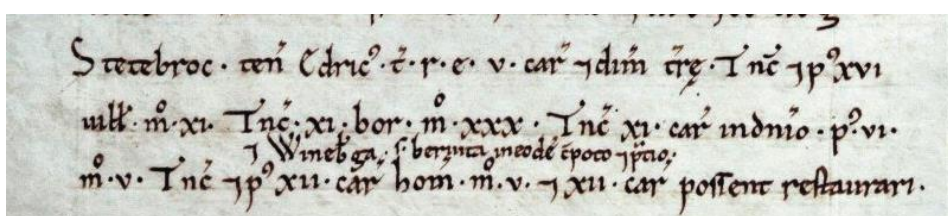 Stetebroc · teñ Edric⁹ · t̄ · r · e · v · car̄ ⁊ dim̄ tr̄ę · Tnc̄ ⁊ p⁹ xvi
uill̄ · m̊ · xi · Tnc̄ · xi · bor · m̊ · xxx · Tnc̄ xi · car̄ indnio · p⁹ · vi ·
⁊ Wineb̄ga ·
m̊ · v · Tnc̄ ⁊ p⁹ xii · car̄ hom̄ · m̊ · v · ⁊ xii · car̄ possent restaurari ·